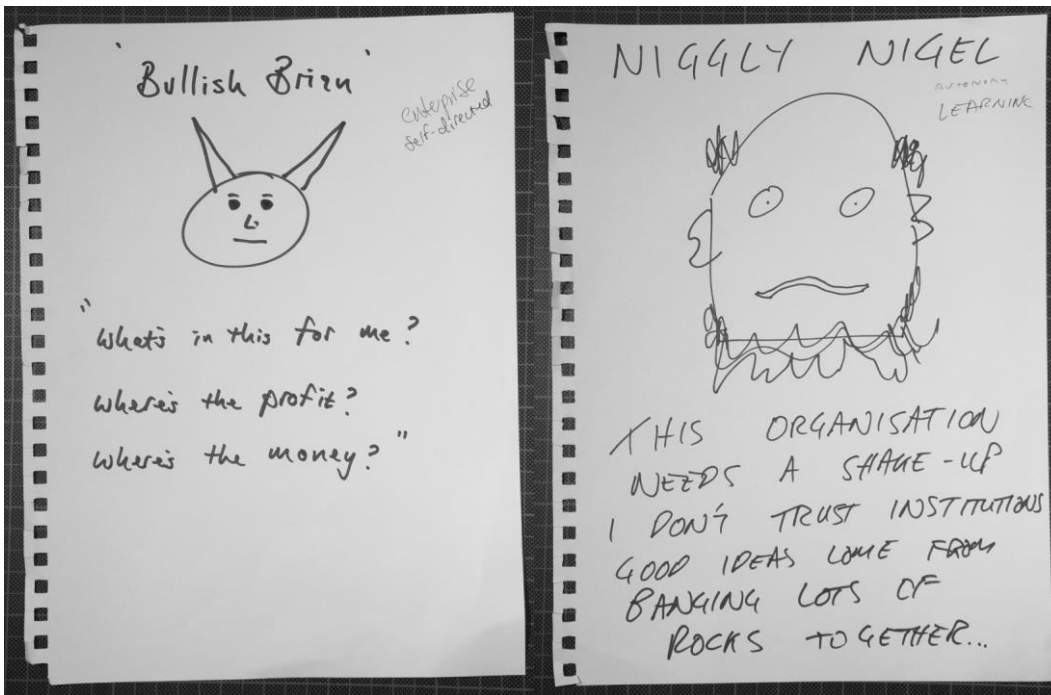 'Bullish Brian'
enterprise
self-directed
"What's in this for me?
Where's the profit?
Where's the money?"
NIGGLY NIGEL
AUTONOMY
LEARNING
THIS ORGANISATION
NEEDS A SHAKE-UP
I DON'T TRUST INSTITUTIONS
GOOD IDEAS COME FROM
BANGING LOTS OF
ROCKS TOGETHER...